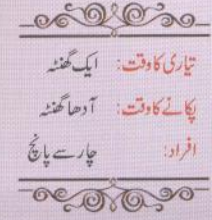 تیاری کا وقت: ایک گھنٹہ
پکانے کا وقت: آدھا گھنٹہ
افراد: چار سے پانچ